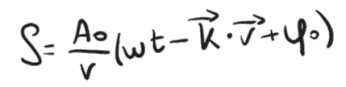 S = \frac{A_0}{r} (\omega t - \vec{k} \cdot \vec{r} + \varphi_0)